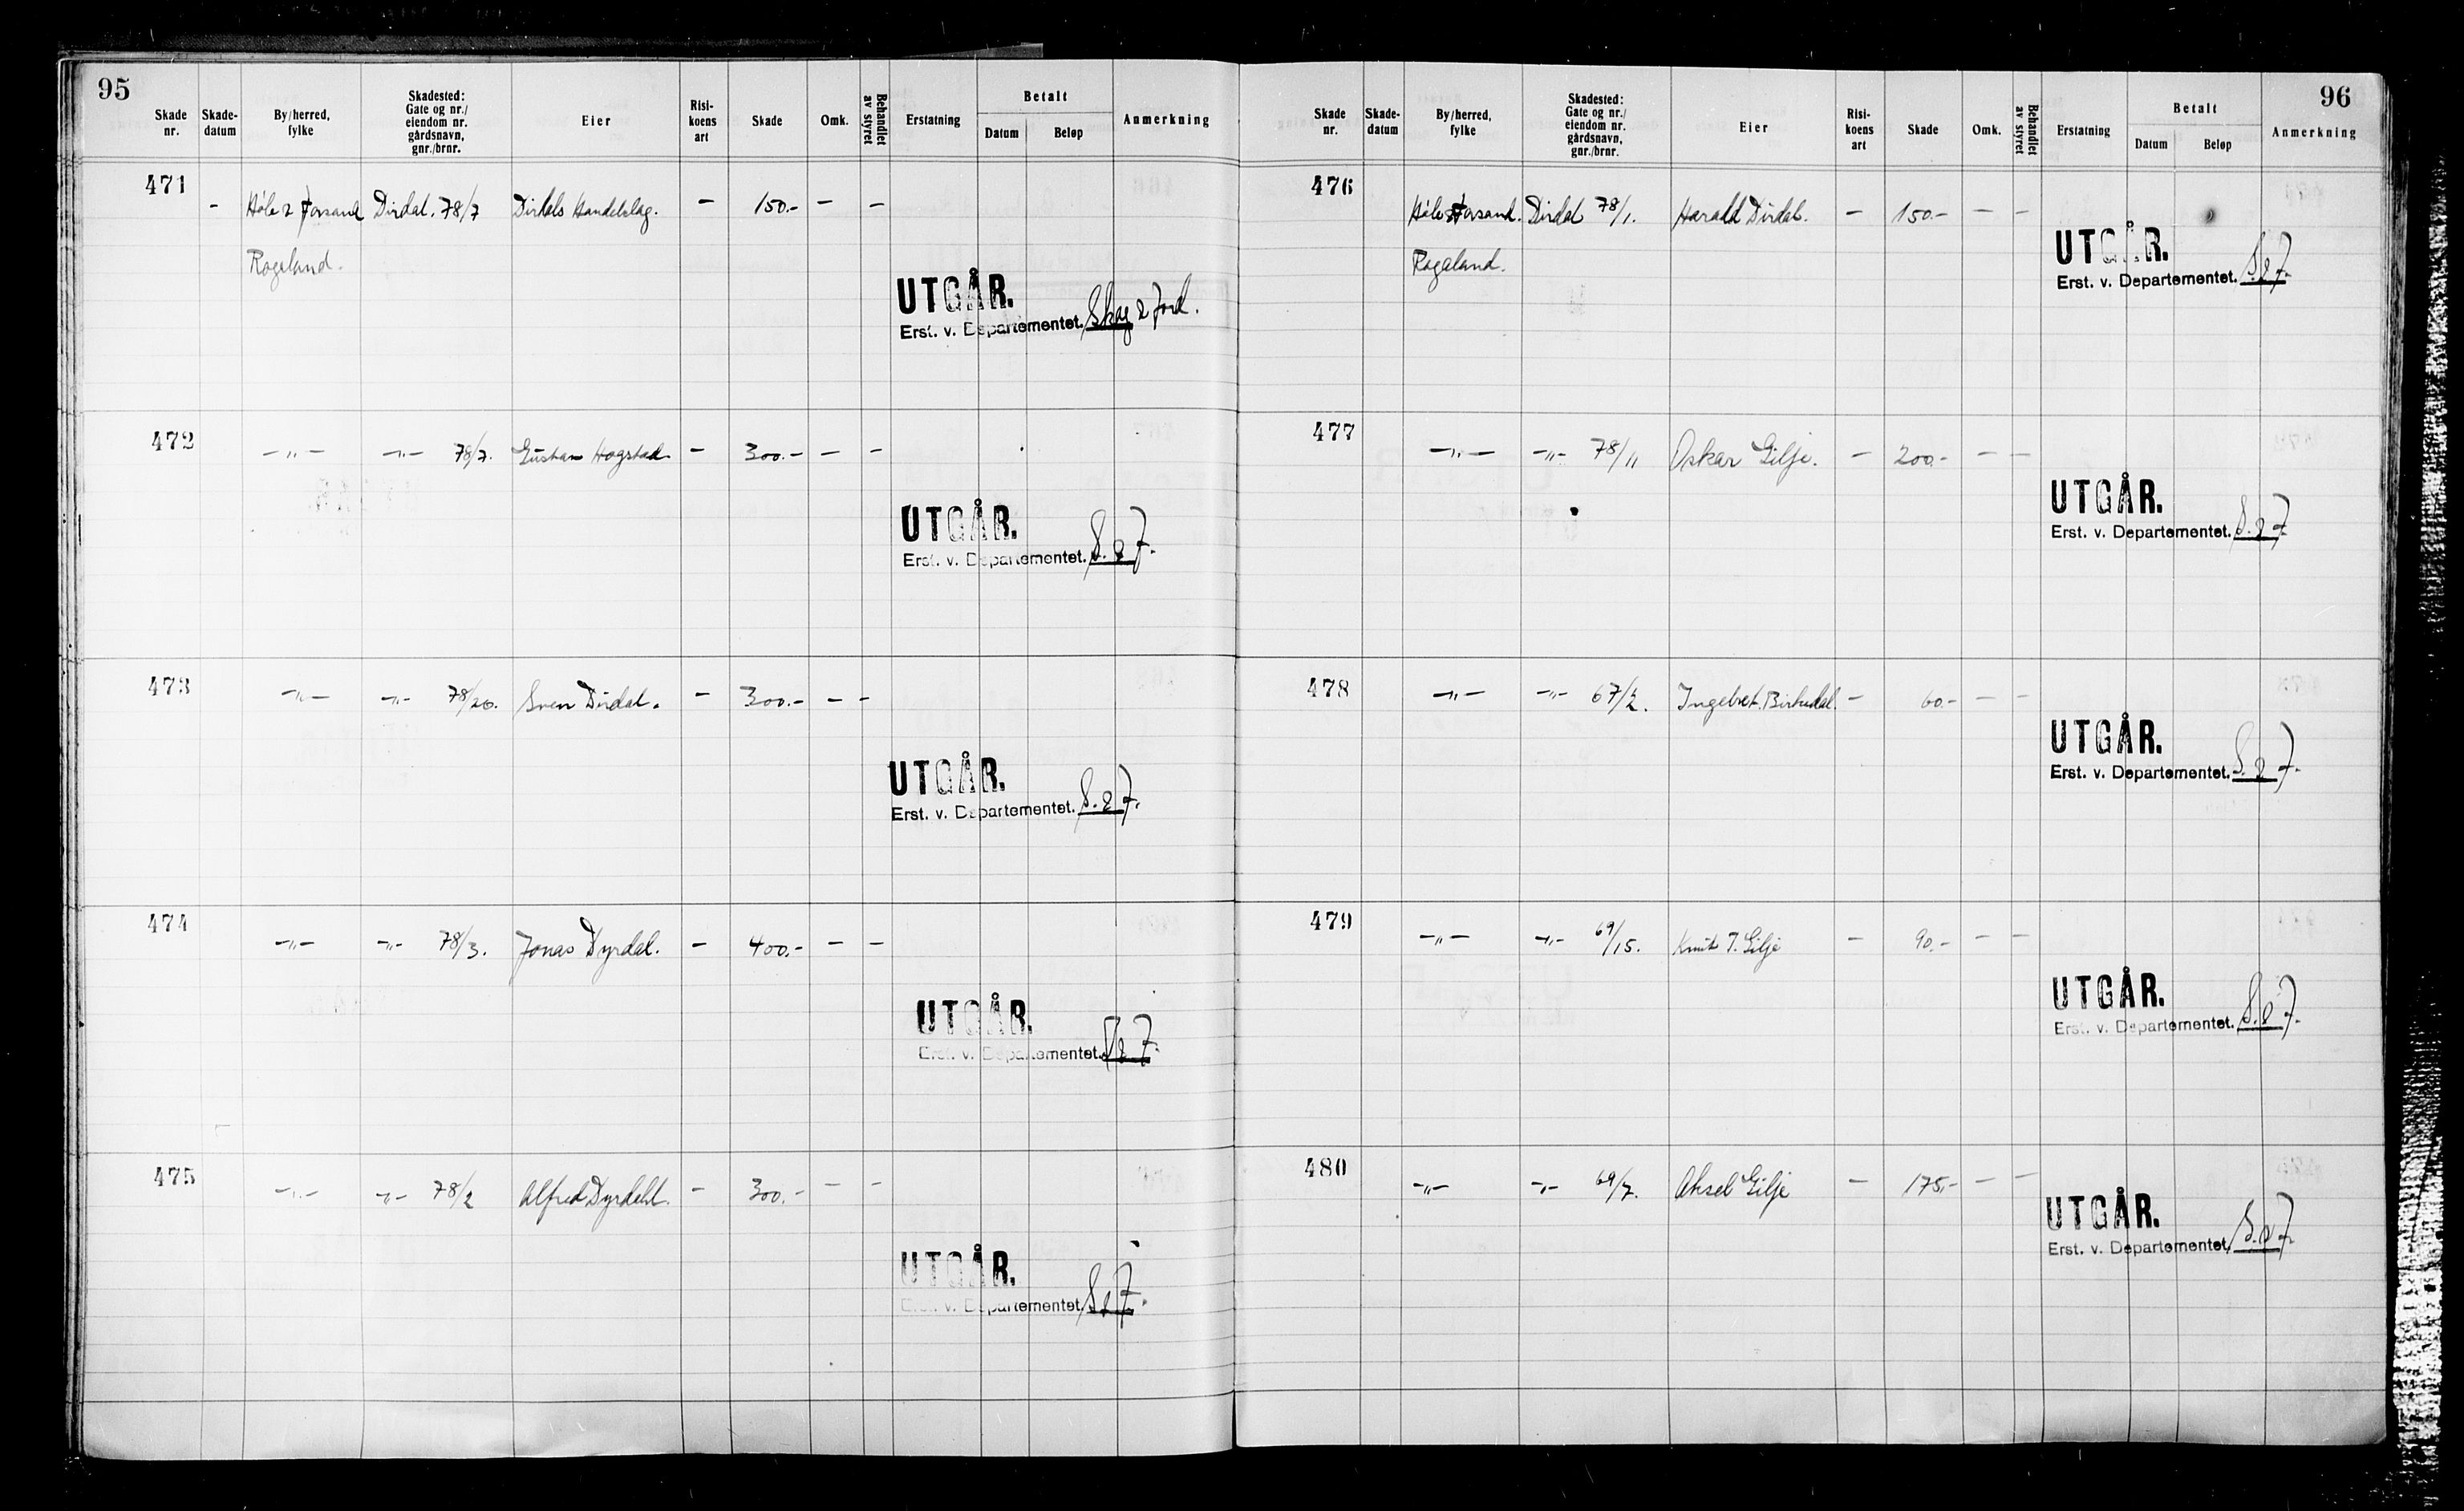 95
Skade nr. Skade-datum By/herred, fylke Skadested: Gate og nr./ eiendom nr. gårdsnavn, gnr./brnr. Eier Risi-koens art Skade Omk. Behandlet av styret Erstatning Betalt Datum Beløp Anmerkning
471
- Høle & Forsand Dirdal. 78/7 Dirdals Handelslag. — 150.- — —
Rogaland.
UTGÅR.
Erst. v. Departementet. Skog & Jord.
472
—„— —„— 78/7. Gustav Hogstad — 300.- — —
UTGÅR.
Erst. v. Departementet. S. & J.
473
—„— —„— 78/20. Sven Dirdal. — 300.- — —
UTGÅR.
Erst. v. Departementet. S. & J.
474
—„— —„— 78/3. Jonas Dyrdal. — 400.- — —
UTGÅR.
Erst. v. Departementet. S & J.
475
—„— —„— 78/2 Alfred Dyrdahl. — 300.- — —
UTGÅR.
Erst. v. Departementet. S & J.
96
Skade nr. Skade-datum By/herred, fylke Skadested: Gate og nr./ eiendom nr. gårdsnavn, gnr./brnr. Eier Risi-koens art Skade Omk. Behandlet av styret Erstatning Betalt Datum Beløp Anmerkning
476
Høle & Forsand. Dirdal 78/1. Harald Dirdal. — 150.- — —
Rogaland.
UTGÅR.
Erst. v. Departementet. S. & J.
477
—„— —„— 78/11 Oskar Gilje. — 200.- — —
UTGÅR.
Erst. v. Departementet. S. & J.
478
—„— —„— 67/2. Ingebret. Birkedal. — 60.- — —
UTGÅR.
Erst. v. Departementet. S. & J.
479
—„— —„— 69/15. Knut T. Gilje — 90.- — —
UTGÅR.
Erst. v. Departementet. S. & J.
480
—„— —„— 69/7. Aksel Gilje — 175.- — —
UTGÅR.
Erst. v. Departementet. S. & J.